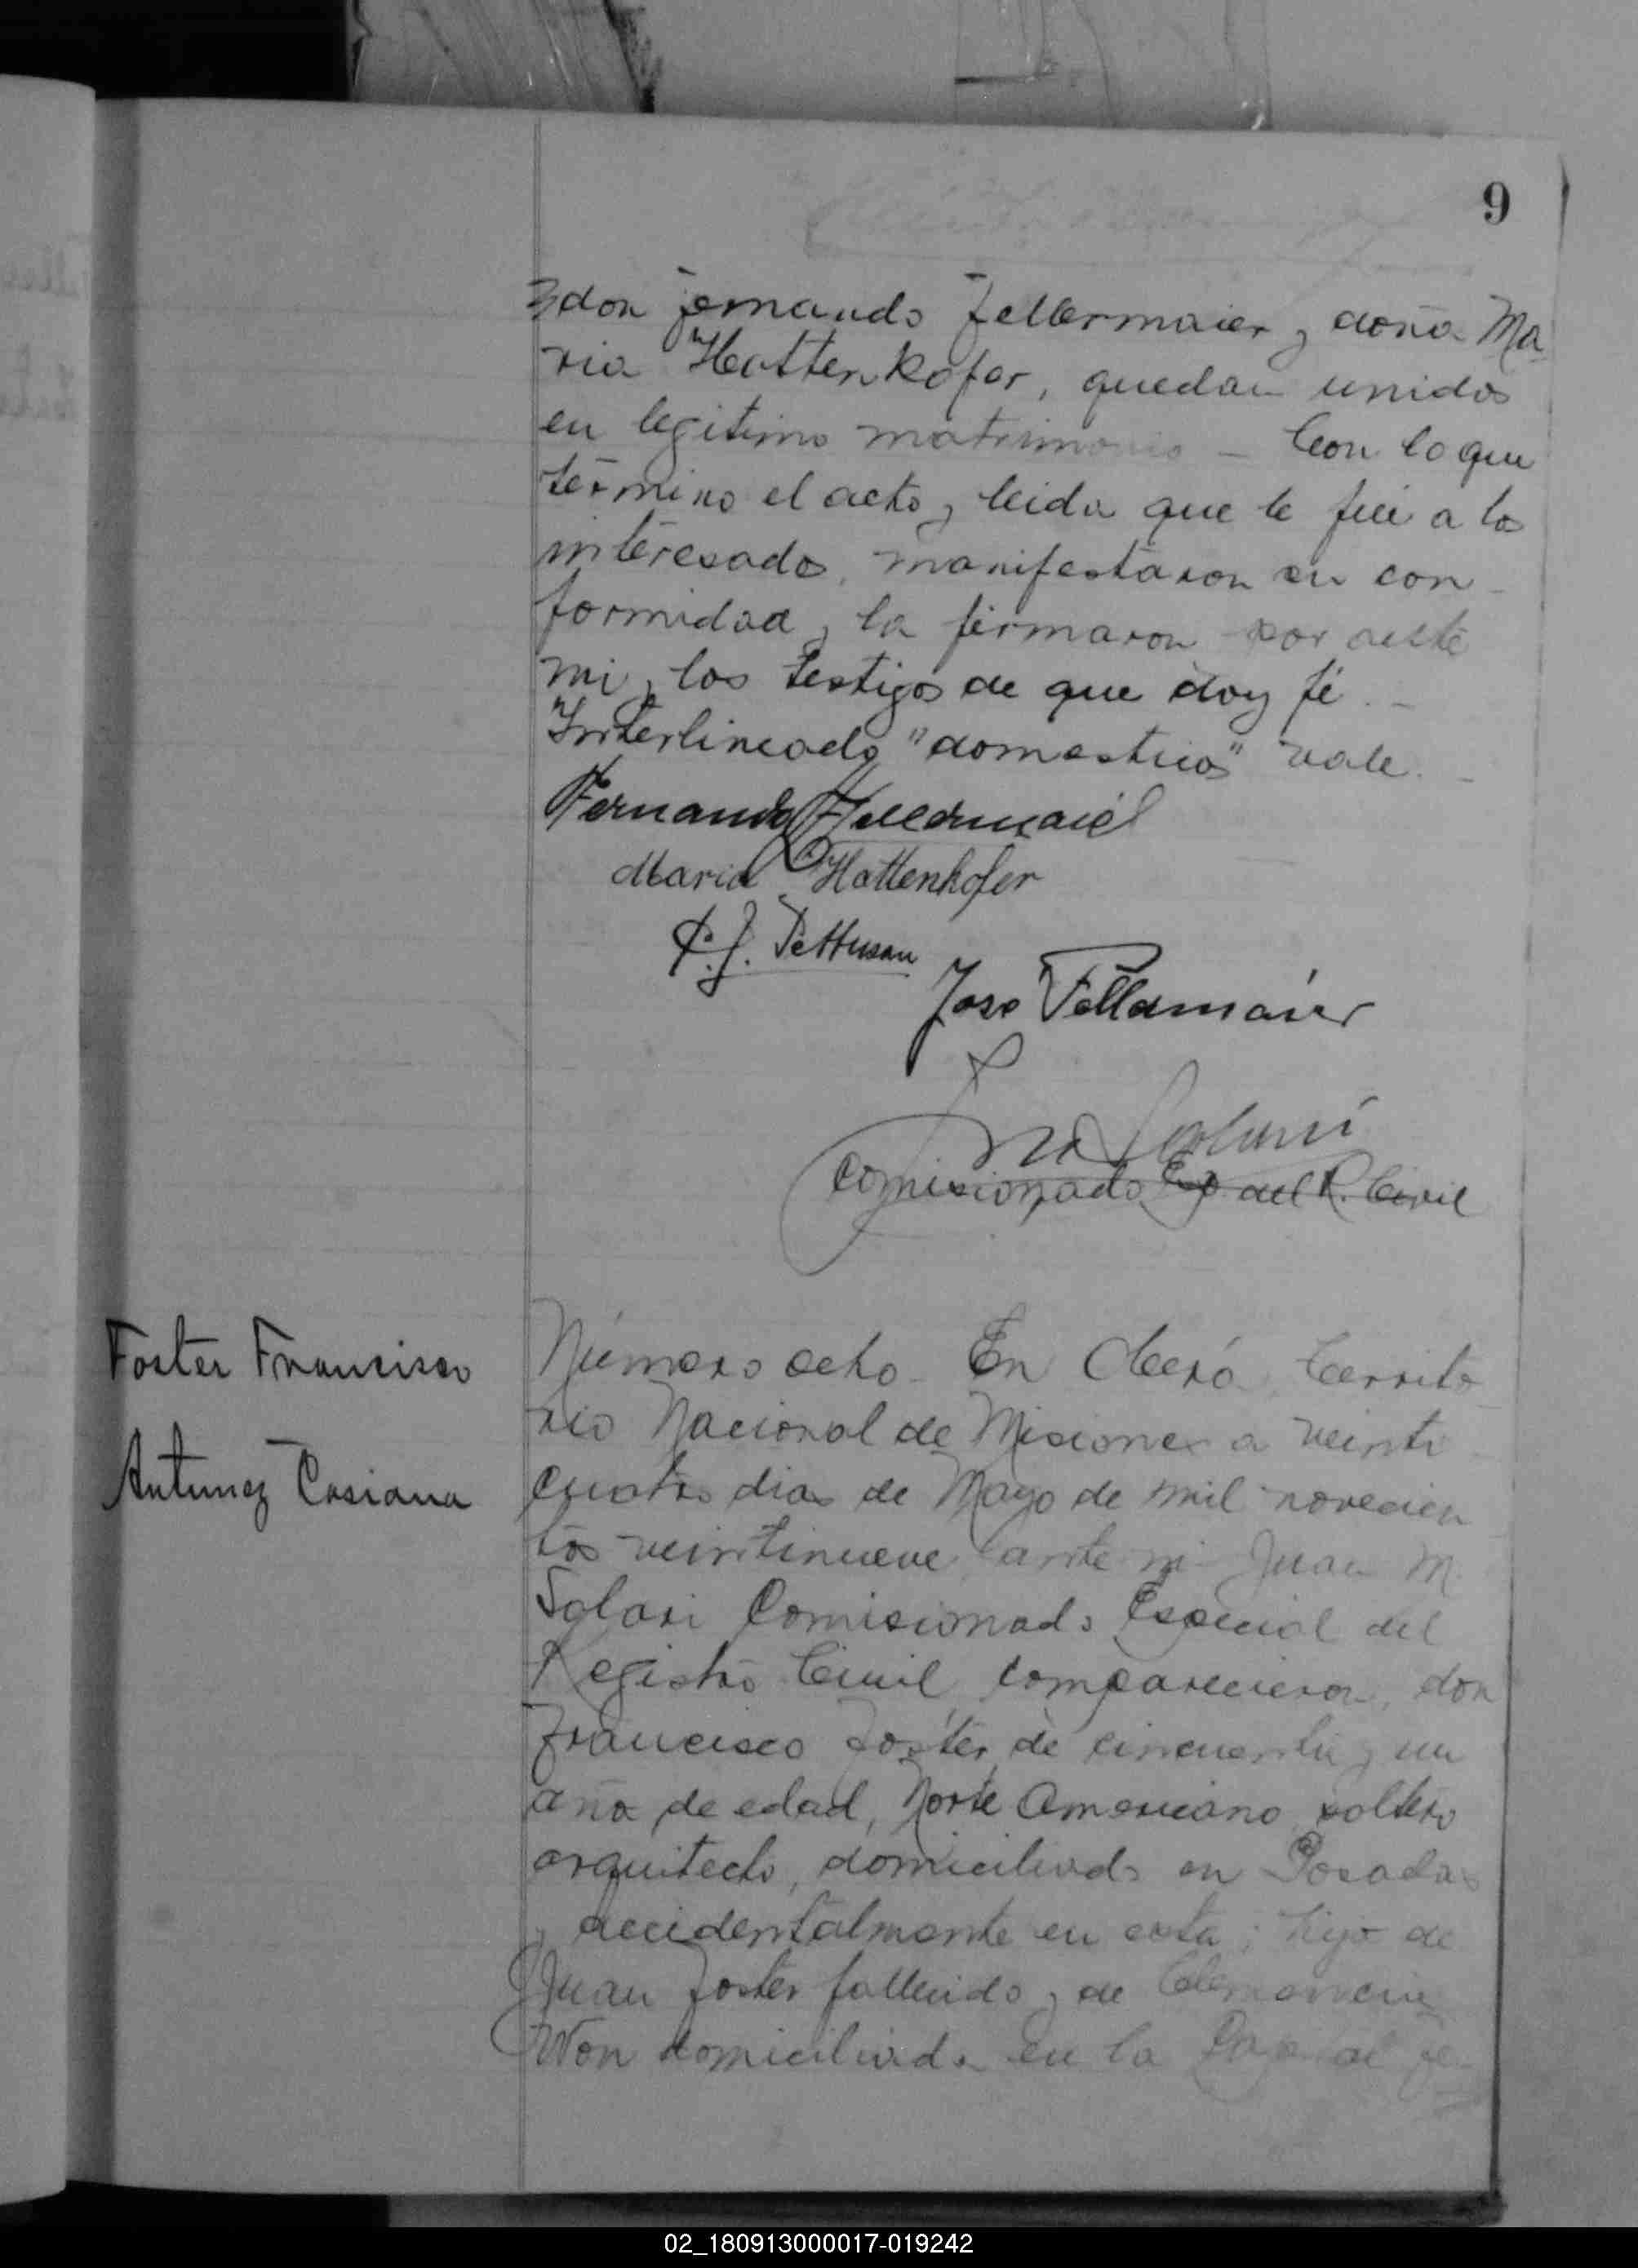 9
don Fernando Fellermaier y doña Ma
ria Hattenkofer, quedan unidos
en legitimo matrimonio - Con lo que
termino el acto, leida que le fue a los
interesados, manifestaron su con-
formidad y la firmaron por ante
mi y los testigos de que doy fé. -
Interlineado "domesticos" vale. -
Fernando Fellermaier
Maria Hattenkofer
Jose Fellermaier
Comisionado Esp. del R. Civil
Foster Francisco
Antunez Casiana
Número ocho - En Oberá, Territo
rio Nacional de Misiones a veinti
cuatro dias de Mayo de mil novecien
tos veintinueve, ante mi Juan M.
Solari Comisionado Especial del
Registro Civil comparecieron, don
Francisco Foster, de cincuenta y un
año de edad, Norte Americano, soltero
arquitecto, domiciliado en Posadas
y accidentalmente en esta; hijo de
Juan Foster fallecido y de Clemencia
Won domiciliada en la Capital
02_180913000017-019242